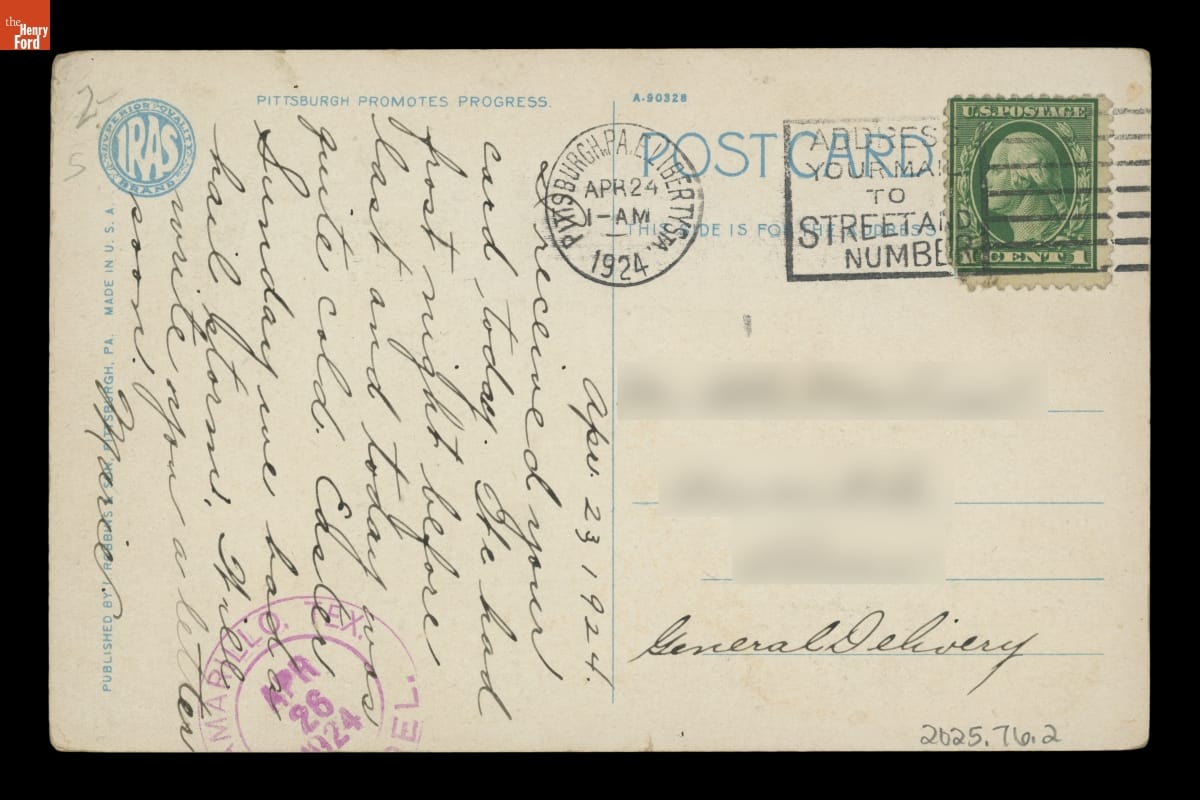 the
Henry
Ford
2
5
SUPERIOR QUALITY
IRAS
BRAND
PITTSBURGH PROMOTES PROGRESS.
A-90328
POST CARD
THIS SIDE IS FOR THE ADDRESS
PITTSBURGH, PA. E. LIBERTY STA.
APR 24
1-AM
1924
ADDRESS
YOUR MAIL
TO
STREET AND
NUMBER
U.S. POSTAGE
1 CENT 1
Apr. 23 1924.
I received your
card today. We had
frost night before
last and today was
quite cold. Easter
Sunday we had a
hail storm. Will
write you a letter
soon.
Marie.
General Delivery
AMARILLO, TEX.
APR
26
1924
DEL.
PUBLISHED BY I. ROBBINS & SON, PITTSBURGH, PA. MADE IN U.S.A.
2025.76.2